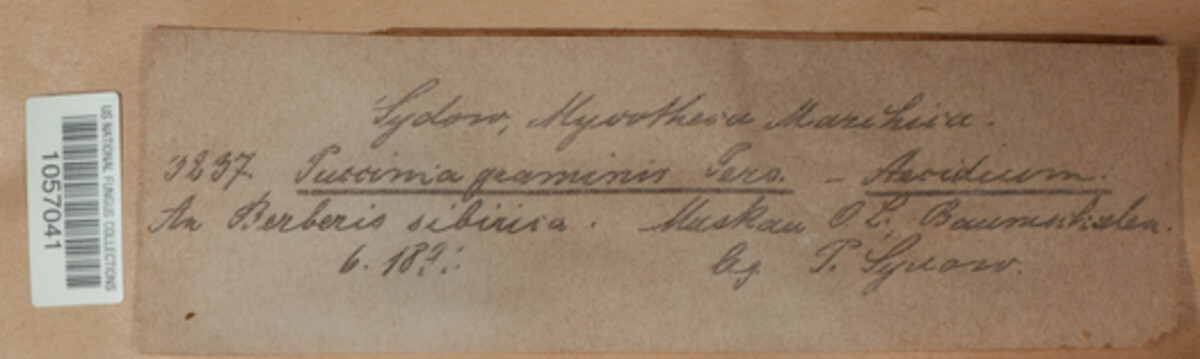 Sydow, Mycotheca Marchica.
3237. Puccinia graminis Pers. - Aecidium.
An Berberis sibirica. Muskau O. L., Baumschulen.
6. 18
leg P. Sydow.
US NATIONAL FUNGUS COLLECTIONS
1057041